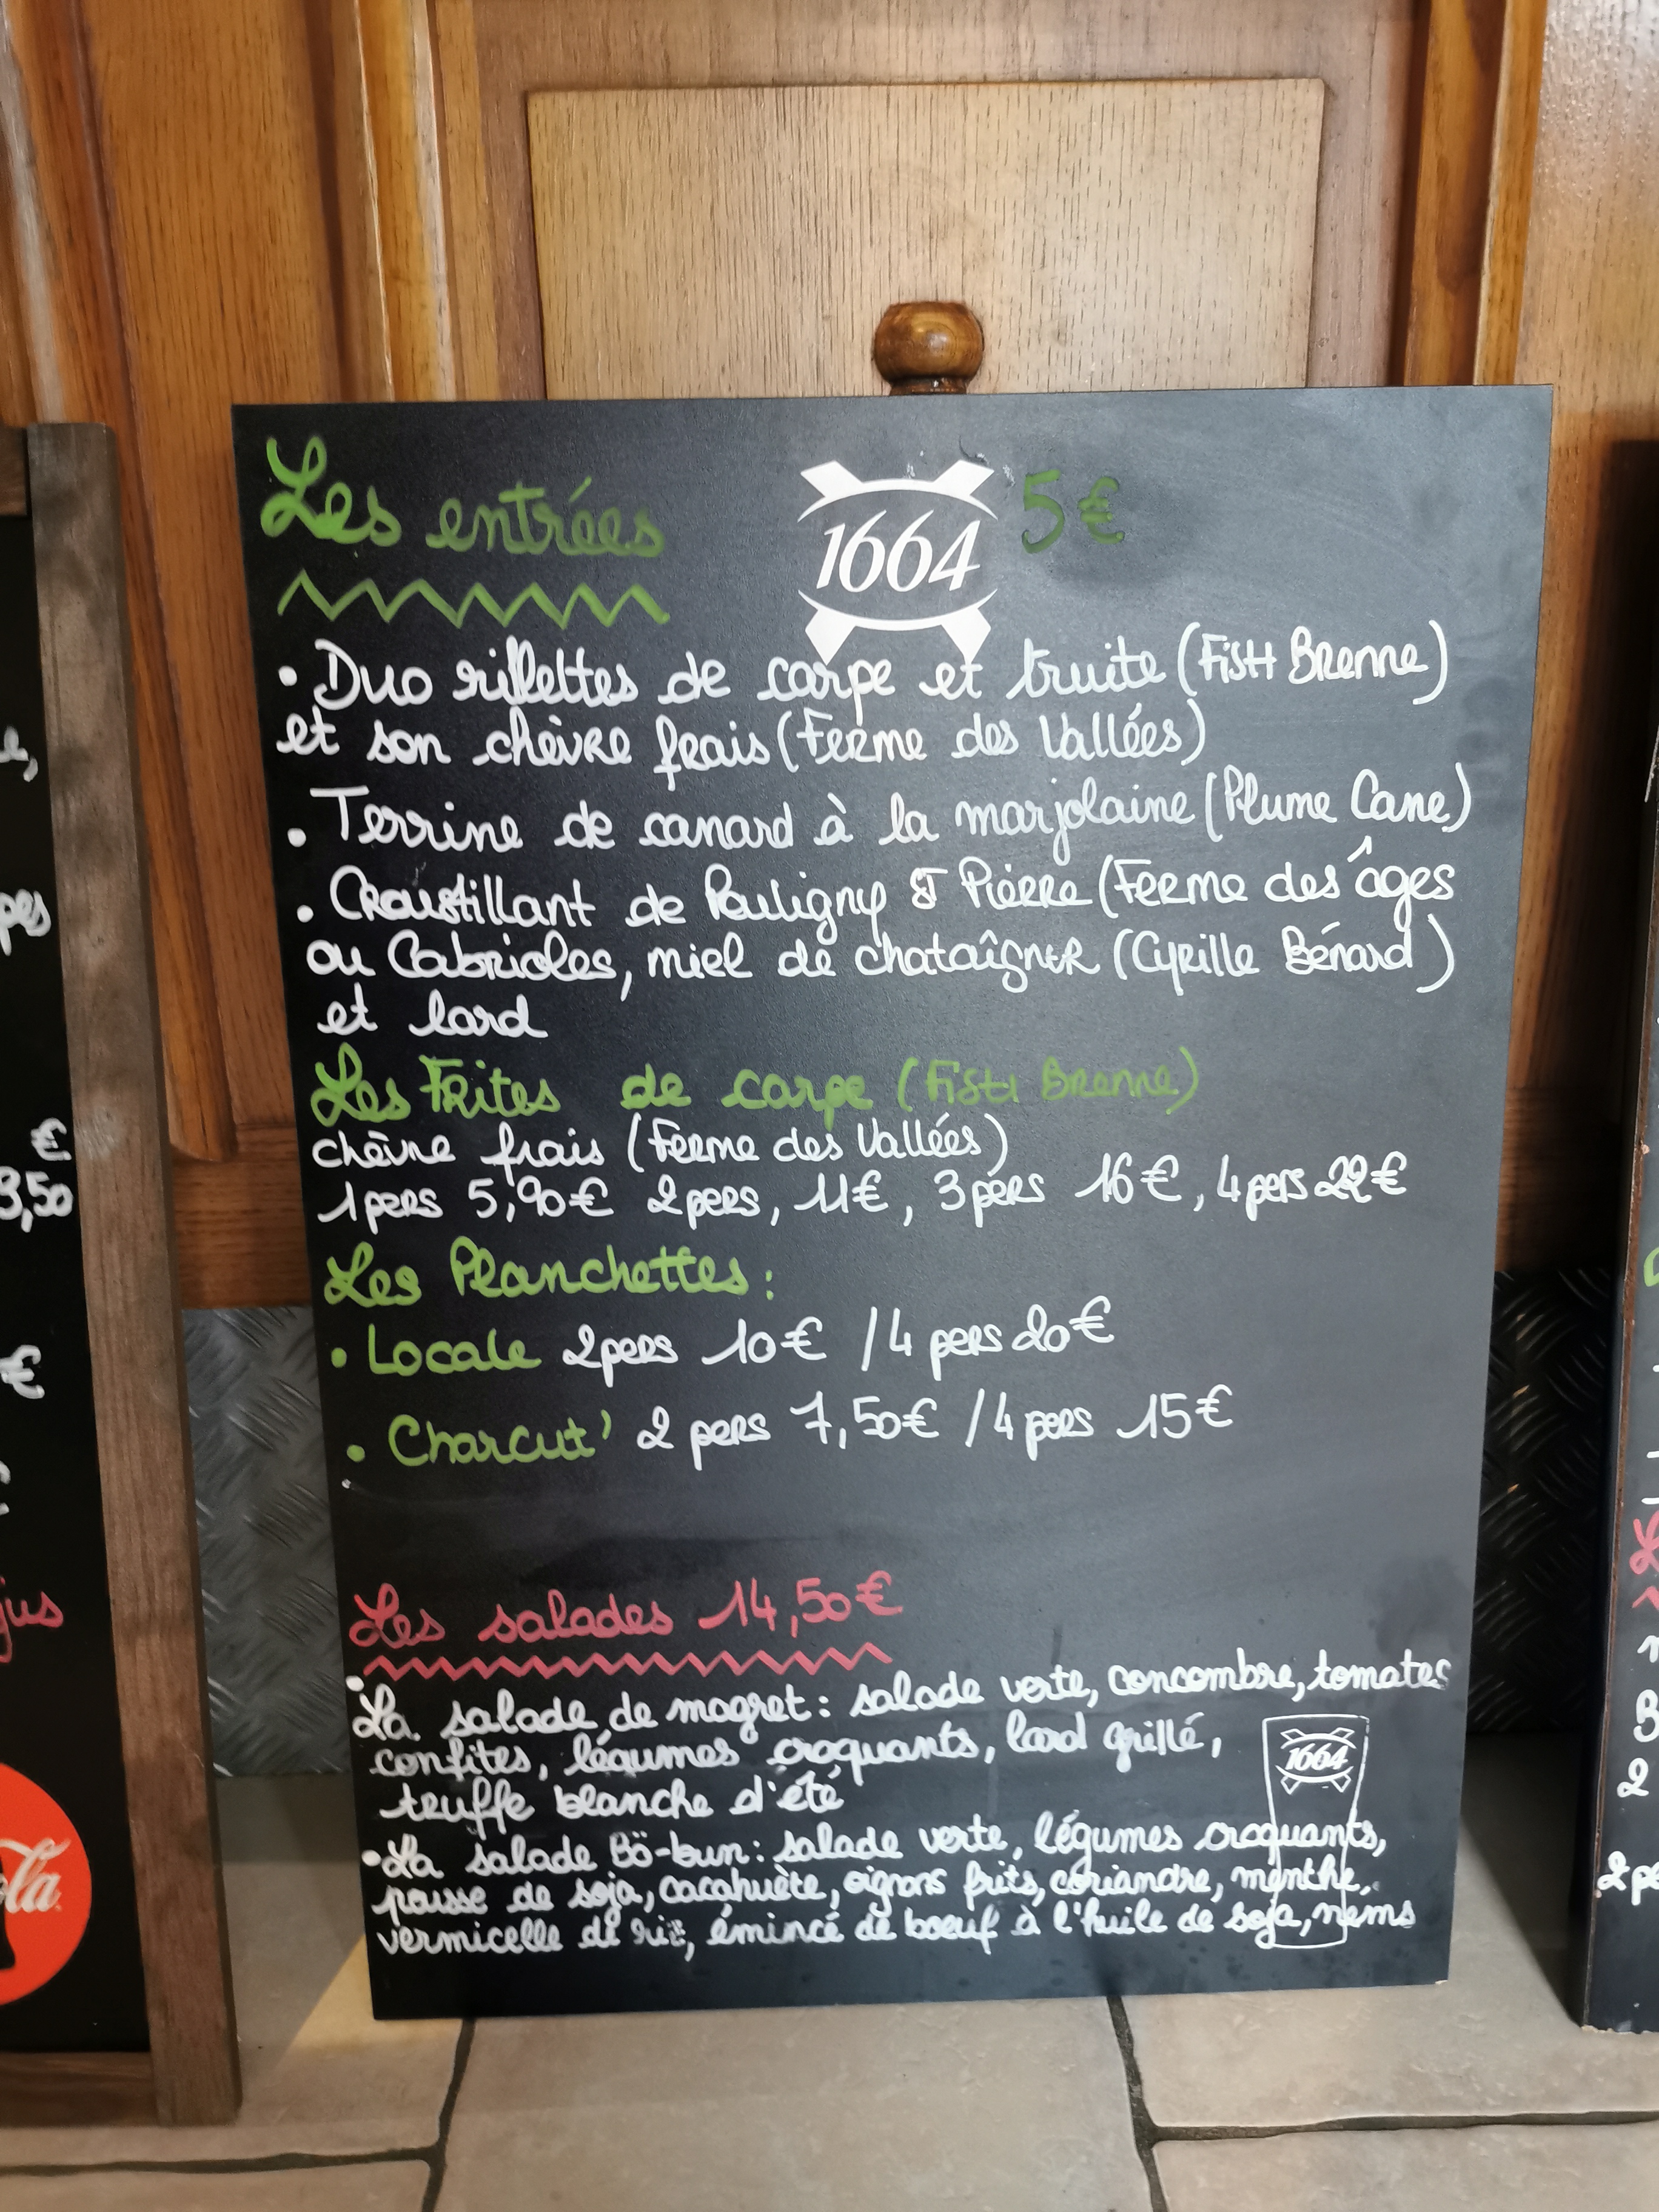 Les entrées 1664 5€
• Duo rillettes de carpe et truite (FisH Brenne)
et son chèvre frais (Ferme des Vallées)
• Terrine de canard à la marjolaine (Plume Cane)
• Croustillant de Pouligny St Pierre (Ferme des âges
ou Cabrioles, miel de chataîgner (Cyrille Bénard)
et lard
Les Frites de carpe (FisH Brenne)
chèvre frais (Ferme des Vallées)
1 pers 5,90€ 2 pers, 11€, 3 pers 16€, 4 pers 22€
Les Planchettes :
• Locale 2 pers 10€ / 4 pers 20€
• Charcut' 2 pers 7,50€ / 4 pers 15€
Les salades 14,50€
• La salade de magret : salade verte, concombre, tomates
confites, légumes croquants, lard grillé,
truffe blanche d'été
1664
• La salade Bö-bun : salade verte, légumes croquants,
pousse de soja, cacahuète, oignons frits, coriandre, menthe,
vermicelle de riz, émincé de boeuf à l'huile de soja, nems
€
3,50
€
jus